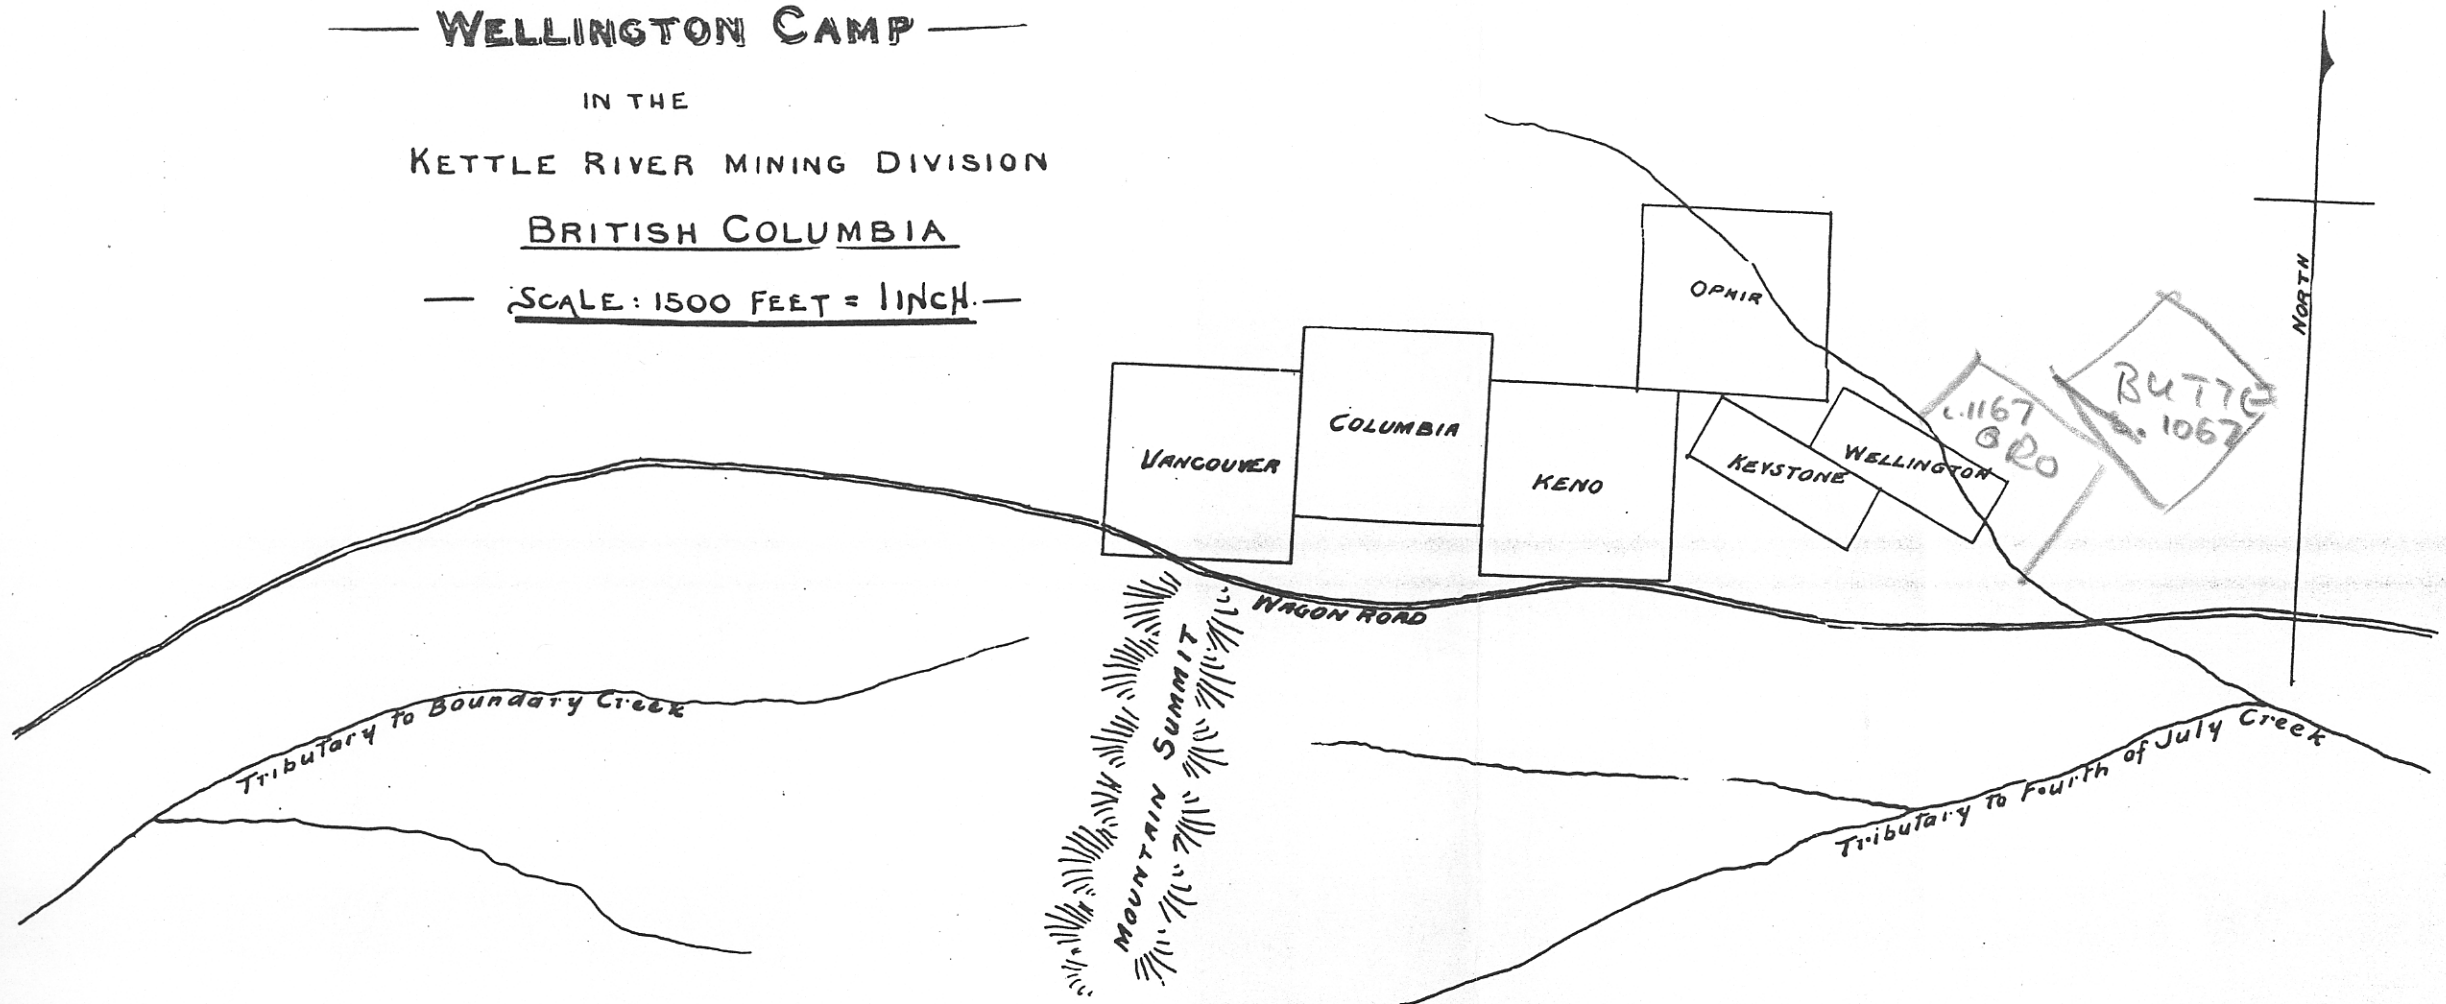 WELLINGTON CAMP
IN THE
KETTLE RIVER MINING DIVISION
BRITISH COLUMBIA
SCALE: 1500 FEET = 1 INCH.
NORTH
OPHIR
VANCOUVER
COLUMBIA
KENO
KEYSTONE
WELLINGTON
1167
BUTTE
1067
WAGON ROAD
MOUNTAIN SUMMIT
Tributary to Boundary Creek
Tributary to Fourth of July Creek